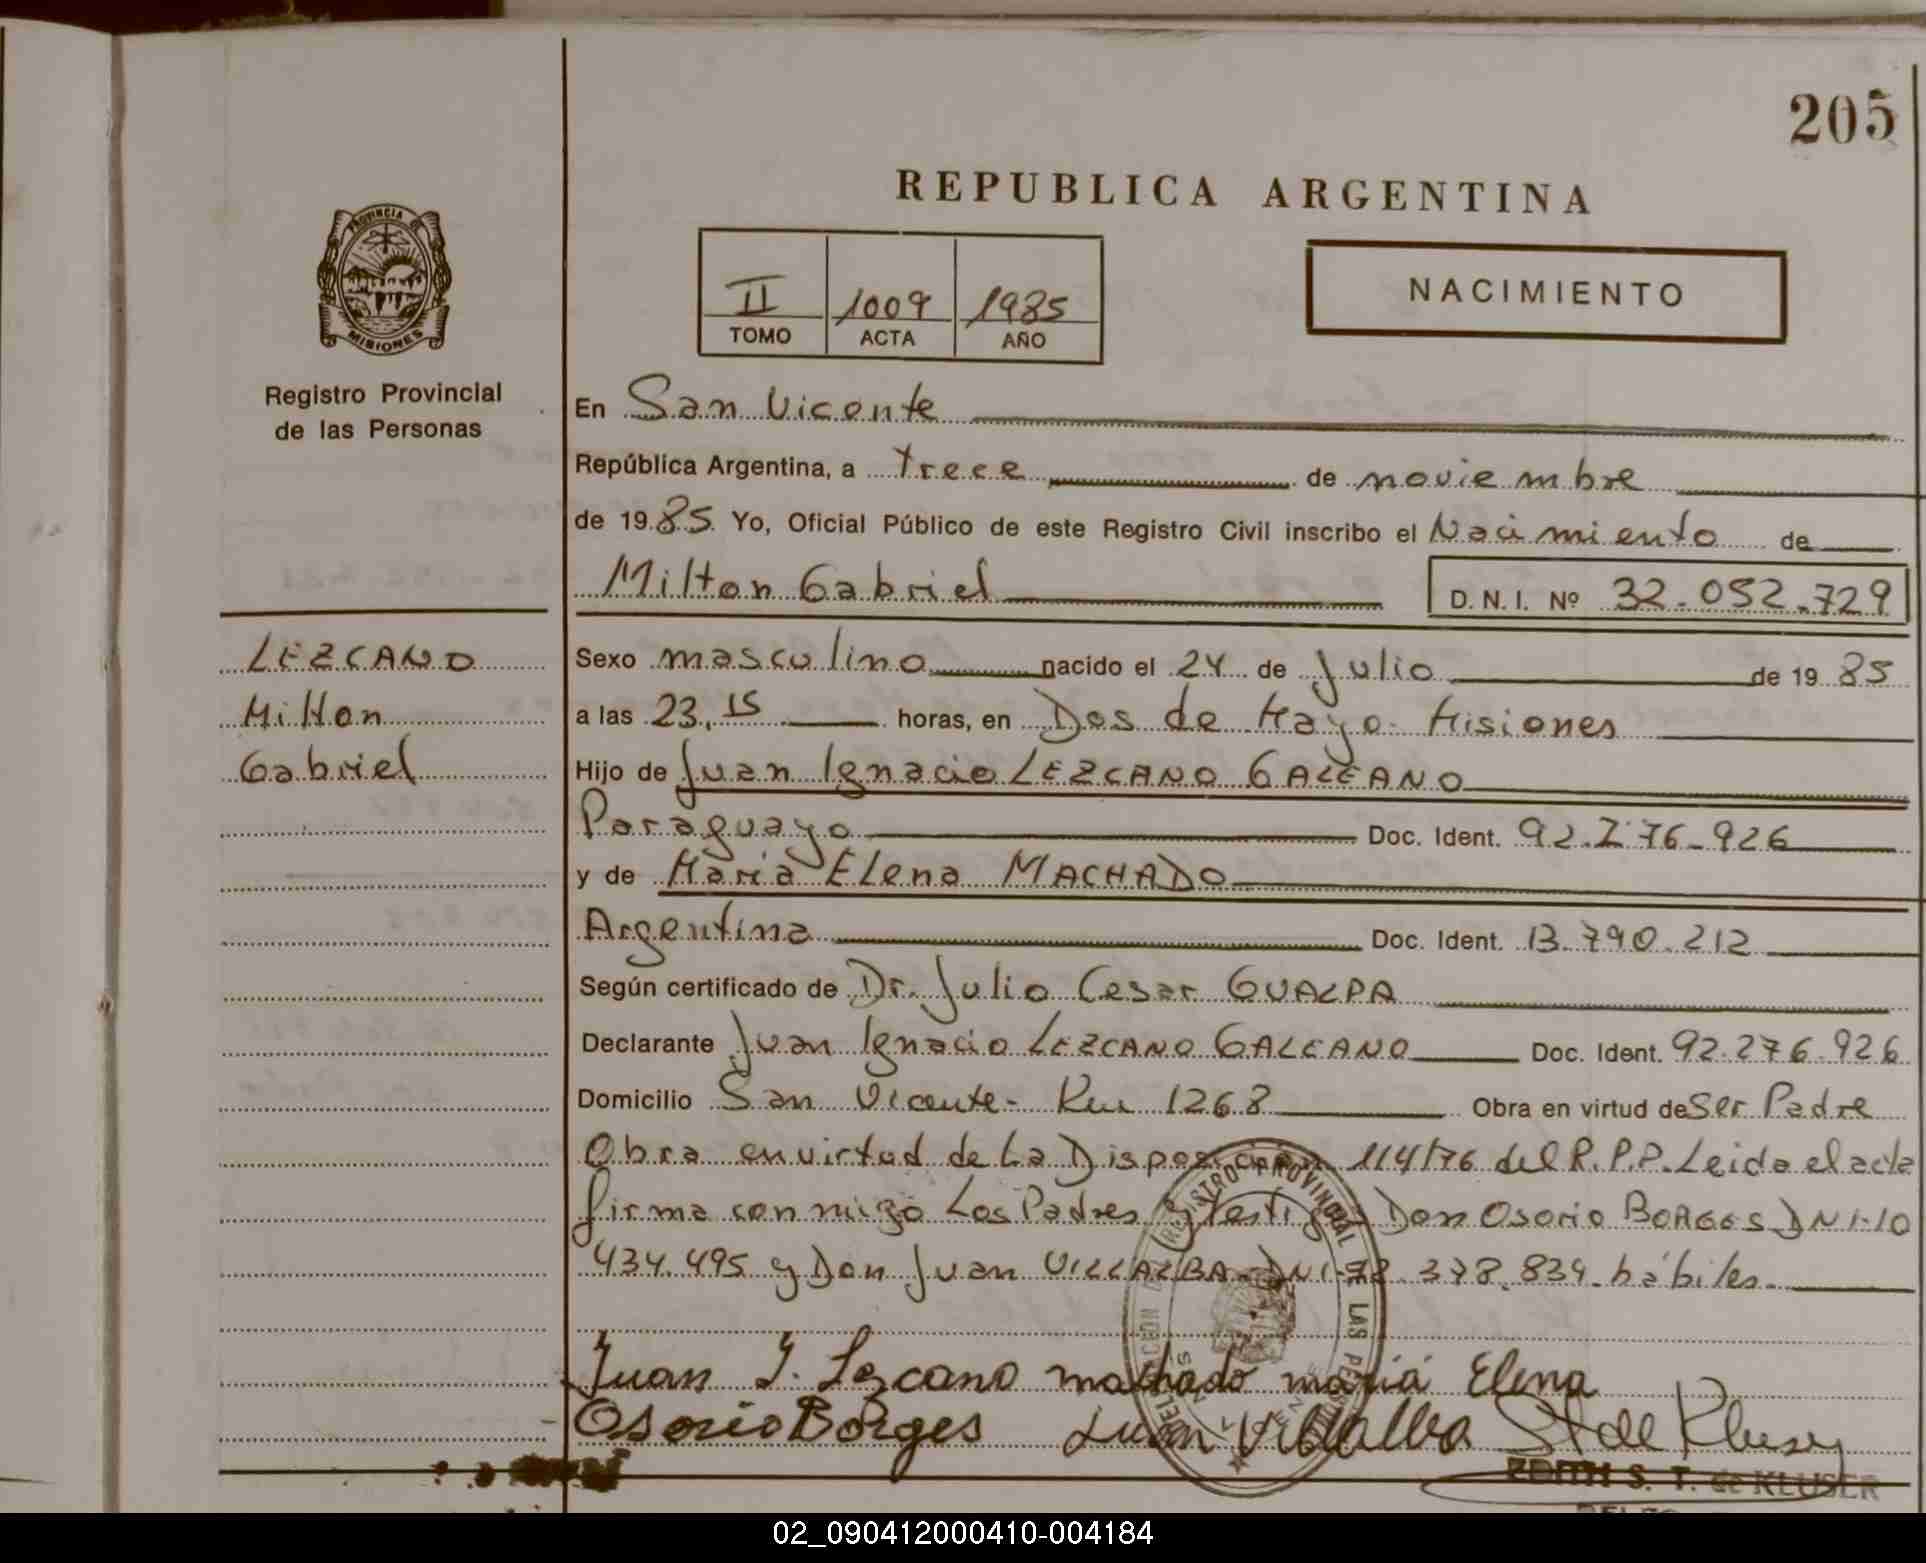 205
REPUBLICA ARGENTINA
II 1009 1985
TOMO ACTA AÑO
NACIMIENTO
PROVINCIA
MISIONES
Registro Provincial
de las Personas
LEZCANO
Milton
Gabriel
En San Vicente
República Argentina, a trece de noviembre
de 1985 Yo, Oficial Público de este Registro Civil inscribo el Nacimiento de
Milton Gabriel D.N.I. Nº 32.052.729
Sexo masculino nacido el 24 de Julio de 1985
a las 23,15 horas, en Dos de Mayo- Misiones
Hijo de Juan Ignacio LEZCANO GALEANO
Paraguayo Doc. Ident. 92.276-926
y de Maria Elena MACHADO
Argentina Doc. Ident. 13.790.212
Según certificado de Dr. Julio Cesar GUALPA
Declarante Juan Ignacio LEZCANO GALEANO Doc. Ident. 92.276.926
Domicilio San Vicente- Km 1268 Obra en virtud de Ser Padre
Obra en virtud de La Disposicion 114/76 del R.P.P. Leida el acta
firma conmigo Los Padres y testigos Don Osorio BORGES DNI-10
434.495 y Don Juan VILLALBA-DNI- 378.834- hábiles.
Juan I. Lezcano machado maria Elena
Osorio Borges Juan Villalba St de Kluser
EDITH S. T. de KLUSER
02_090412000410-004184